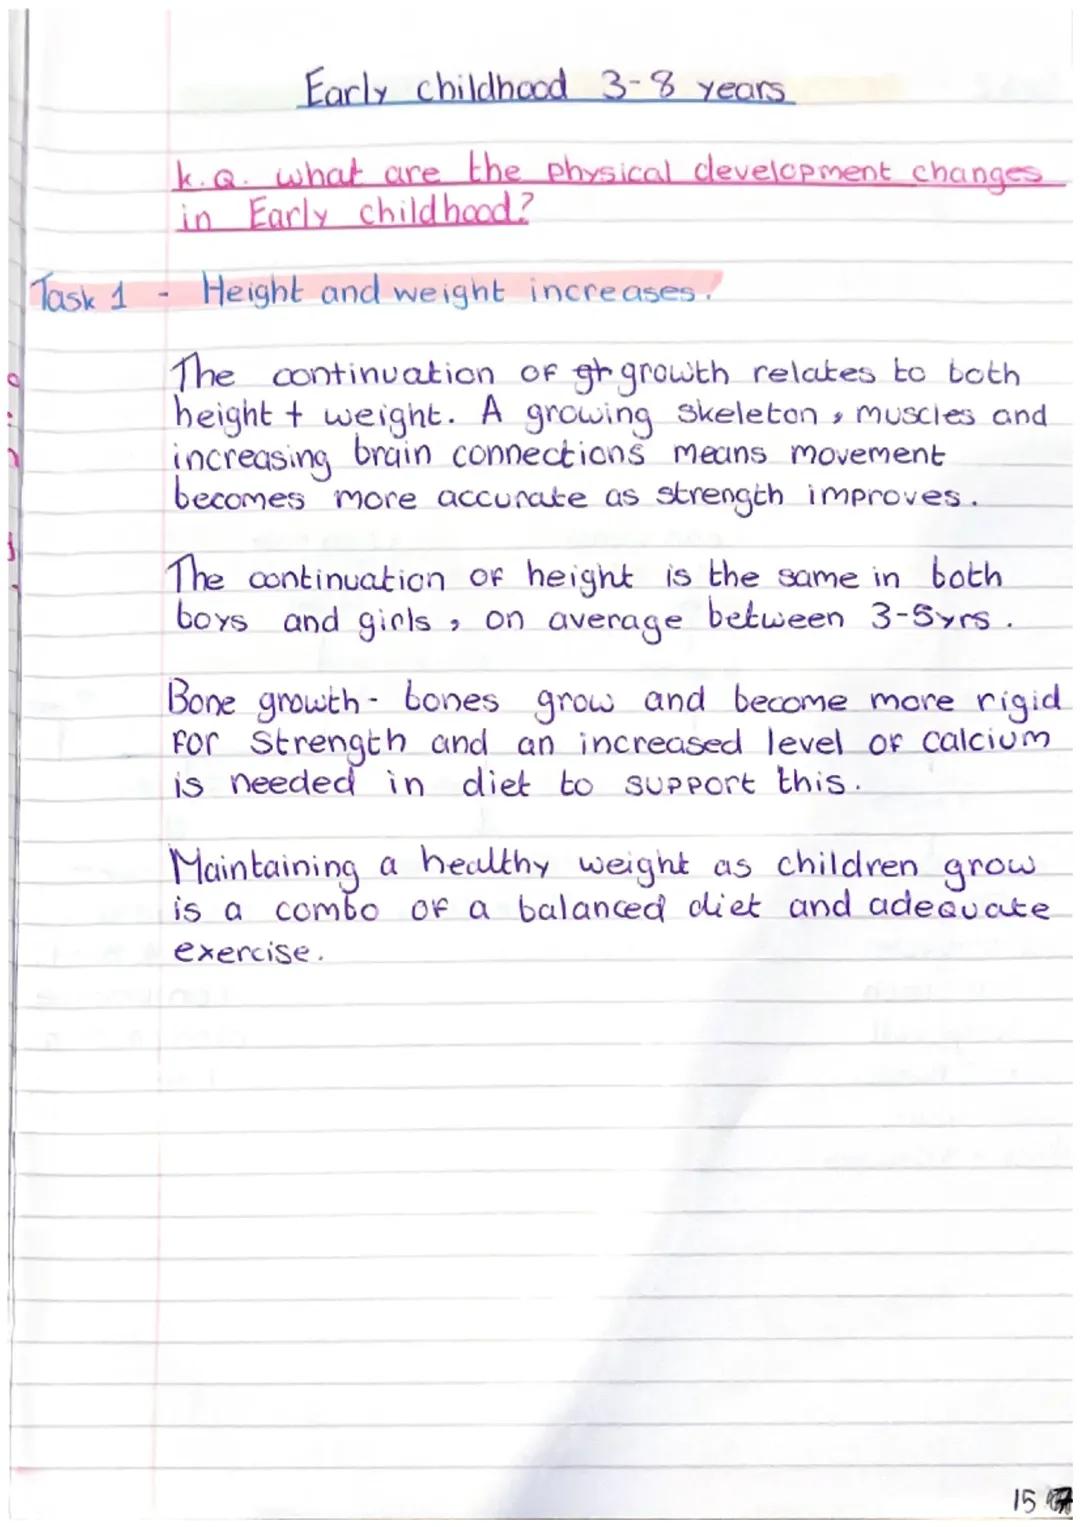 Early childhood 3-8 years
k.Q. what are the physical development changes
in Early childhood?
Task 1 - Height and weight increases.
The continuation of growth relates to both
height + weight. A growing skeleton, muscles and
increasing brain connections means movement
becomes more accurate as strength improves.
The continuation of height is the same in both
boys and girls, on average between 3-5yrs.
Bone growth - bones grow and become more rigid
for strength and an increased level of calcium
is needed in diet to support this.
Maintaining a healthy weight as children grow
is a combo of a balanced diet and adequate
exercise.
15